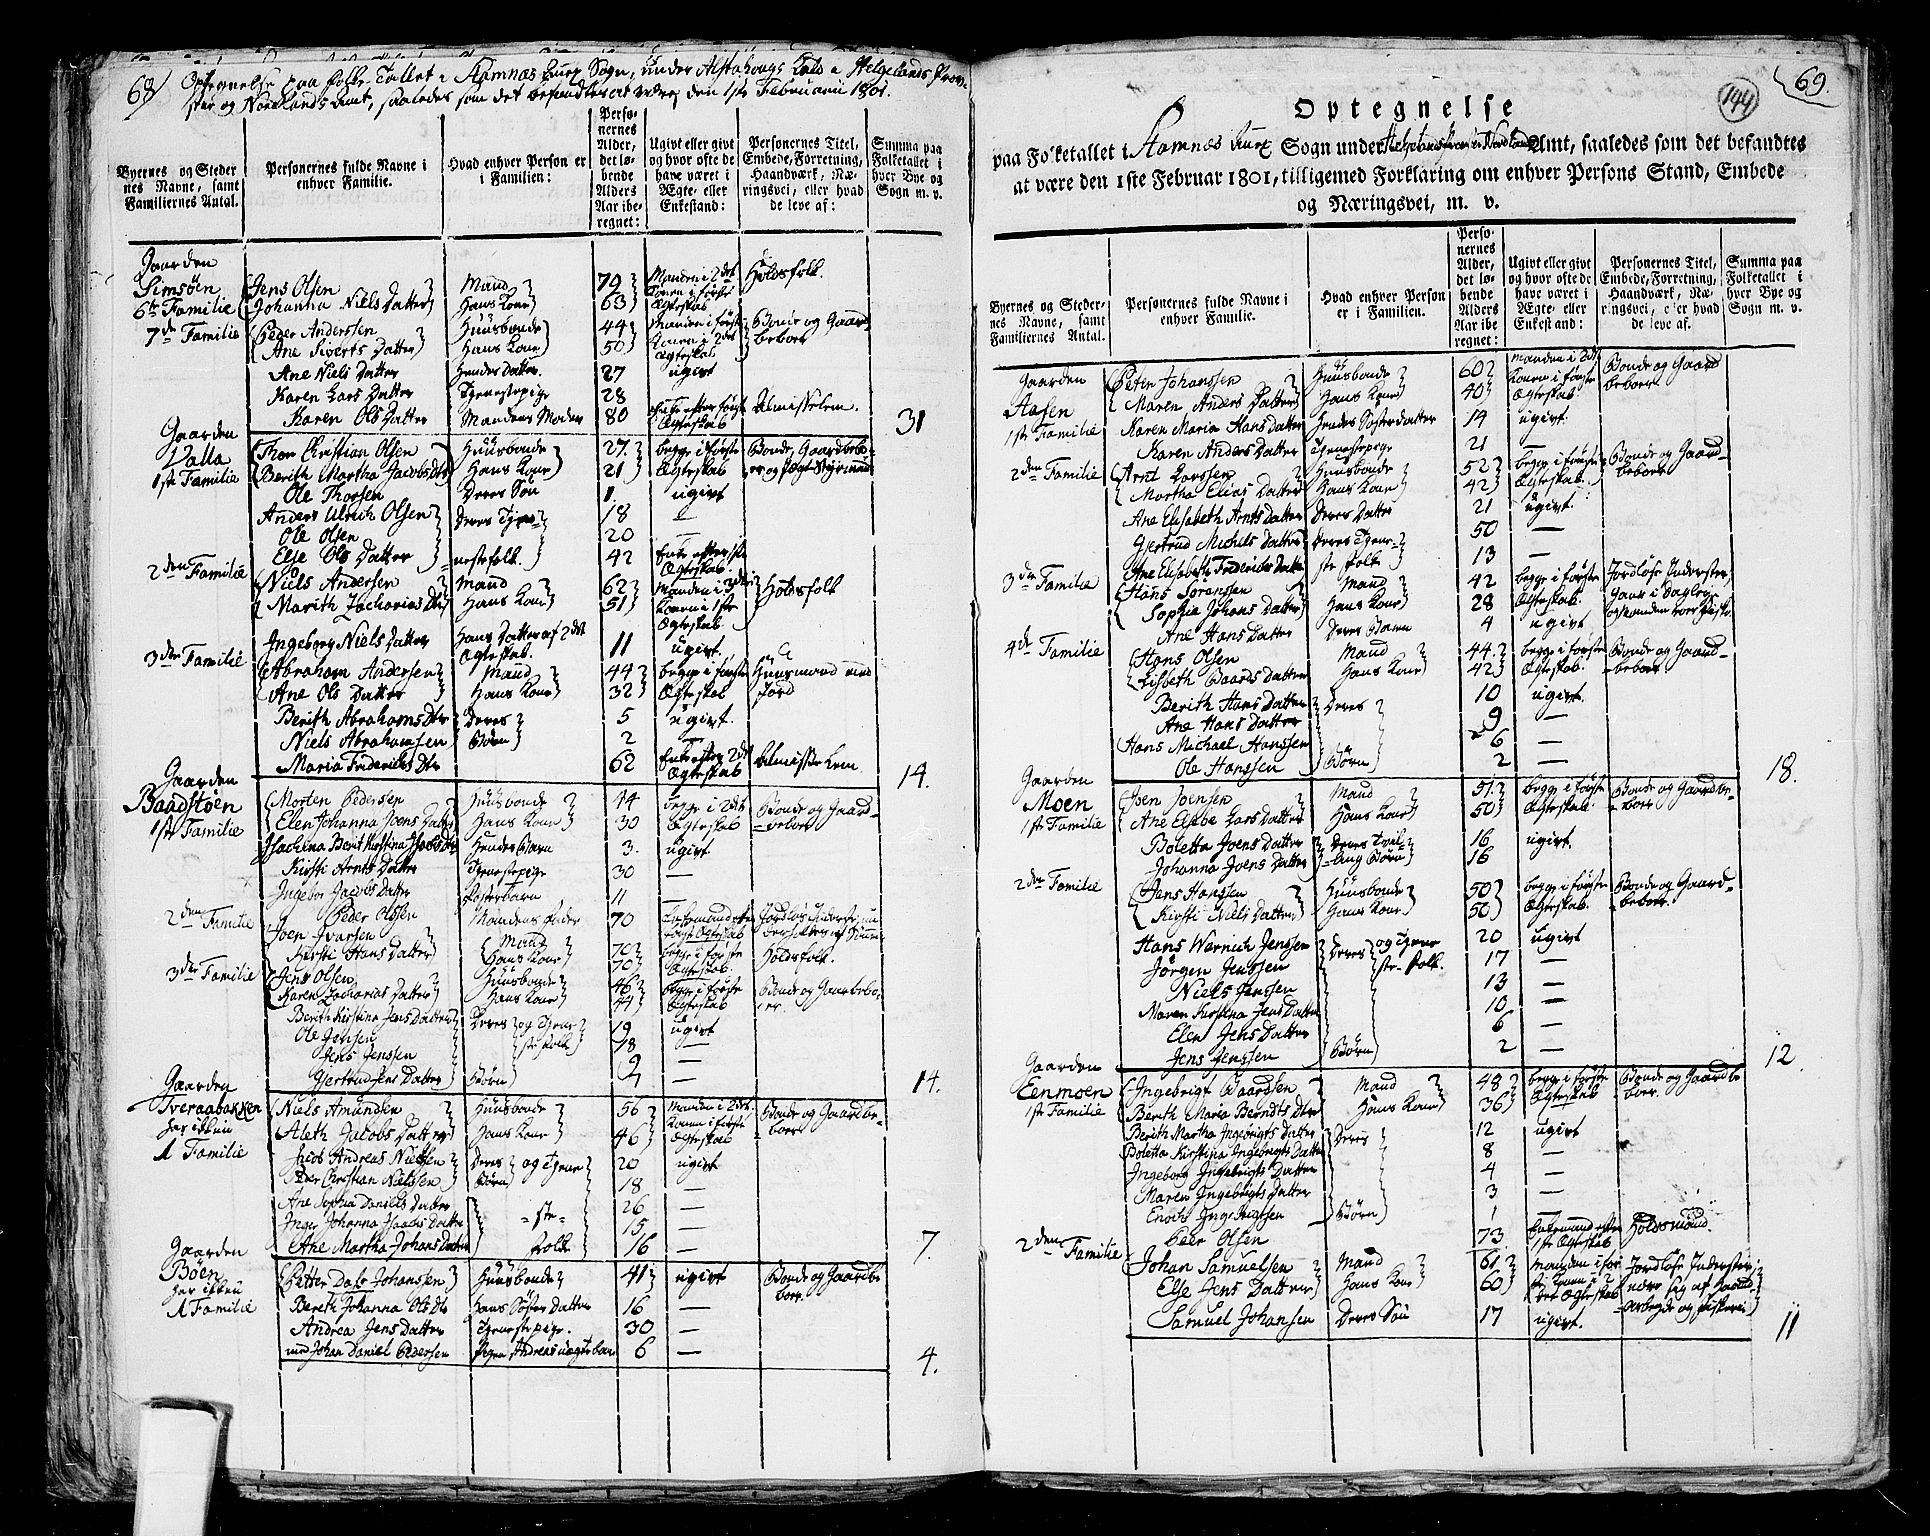 68)
Optegnelse paa Folke Tallet i Stamnæs Sogn, under Alstahougs Kald i Helgelands Prov-
stie og Nordlands Amt, saaledes som det befandtes at være, den 1ste Februarii 1801.
Byernes og Steder
nes Navne, samt
Familiernes Antal.
Personernes fulde Navne i
enhver Familie.
Hvad enhver Person er
i Familien:
Perso-
nernes
Alder,
det lø-
bende
Alders
Aar ibe-
regnet:
Ugivt eller givt
og hvor ofte de
have været i
Ægte- eller
Enkestand:
Personernes Titel,
Embede, Forretning,
Haandværk, Næ-
ringsvej, eller hvad
de leve af:
Summa paa
Folketallet i
hver Bye og
Sogn m. v.
Gaarden
Simsøen Jens Olsen Mand 79 Manden i 2det Holdsfolk.
6te Familie Johanna Niels Datter Hans Kone 63 Konen i første Ægteskab
7de Familie Peder Anderssen Huusbonde 44 Manden i første Bonde og Gaard-
Ane Siverts Datter Hans Kone 50 Konen i 2det Ægteskab beboer
Ane Niels Datter Hendes Datter 27 ugivt
Karen Lars Datter Tjenestepige 28
Karen Ols Datter Mandens Moder 80 Enke efter første Ægteskab Almisselem. 31
Gaarden
Valla Thor Christian Olsen Huusbonde 27 begge i første Bonde, Gaardbebo-
1ste Familie Berith Martha Jacobs Dtr Hans Kone 21 Ægteskab
Ole Thorsen Deres Søn 1. ugivt
Anders Ulrich Olsen Deres Tjene- 18 —
Ole Olsen 20 —
Else Ols Datter nestefolk. 42 Enke efter 1ste Ægteskab
2den Familie Niels Andersen Mand 62 Manden i 3die Holdsfolk
Marith Zacharias Dtr Hans Kone 51 Konen i 1ste Ægteskab
Ingeborg Niels Datter Hans Datter af 2det Ægteskab 11 ugivt
3die Familie Abraham Andersen Mand 44 begge i første Huusmand med
Ane Ols Datter Hans Kone 32 Ægteskab Jord
Berith Abrahams Dtr Deres 5 ugivt.
Niels Abrahamsen Børn 2 —
Maria Friderichs Dtr 62 Enke efter 2det Ægteskab Almisse Lem 14.
Gaarden
Baadstøen Morten Pedersen Huusbonde 44 begge i 2det Bonde og Gaard-
1ste Familie Elen Johanna Joens Datter Hans Kone 30 Ægteskab beboer
Berit Kirstina Hendes Barn 3. ugivt
Kirsti Arnts Datter Tjenestepige 30 —
Ingebor Jacobs Datter Fosterbarn 11 —
Peder Olssen Mandens Fader 70
2den Familie Joen Ivarsen Mand 70 begge i første
Kirsti Hans Datter Hans Kone 70 Ægteskab Holdsfolk.
3die Familie Jens Olsen Huusbonde 46 begge i første Bonde og Gaardbebo-
Karen Zacharias Datter Hans Kone 44 Ægteskab er.
Berith Kirstina Jens Datter Deres og Tjene- 19 ugivt
Ole Jensen ste Folk 18 —
Jens Jenssen 9 —
Gjertrud Jens Datter Børn 7 — 14.
Gaarden
Tveraabakken Niels Amundsen Huusbonde 56 Manden i 2det Bonde og Gaardbe-
har ikkun Aleth Jacobs Datter Hans Kone 46 Konen i første Ægteskab boer
1 Familie Jacob Andreas Nielssen Deres og Tjene- 20 ugivt
Peder Christian Nielssen Børn 18 —
Ane Sophia Daniels Datter 26 —
Inger Johanna Jacobs Datter -ste- 15 —
Ane Martha Johans Datter Folk 16 — 7.
Gaarden
Bøen Petter Dass Johanssen Huusbonde 41 ugivt Bonde og Gaardbe
har ikkun Berith Johanna Ols Dtr Hans Søster Datter 16 — boer.
1 Familie Andrea Jens Datter Tjenestepige. 30 —
med Johan Daniel Pedersen Pigen Andreas uægte barn 6 — 4.
69.
144
Optegnelse
paa Folketallet i Stamnes Sogn under Amt, saaledes som det befandtes
at være den 1ste Februar 1801, tilligemed Forklaring om enhver Persons Stand, Embede
og Næringsvei, m. v.
Byernes og Steder-
nes Navne, samt
Familiernes Antal.
Personernes fulde Navne i
enhver Familie.
Hvad enhver Person
er i Familien.
Perso-
nernes
Alder,
det lø-
bende
Alders
Aar ibe-
regnet:
Ugivt eller givt
og hvor ofte de
have været i
Ægte- eller
Enkestand:
Personernes Titel,
Embede, Forretning,
Haandværk, Næ-
ringsvei, eller hvad
de leve af.
Summa paa
Folketallet i
hver Bye og
Sogn m. v.
Gaarden Peter Johanssen Huusbonde 60 Manden i 2det Bonde og Gaard
Aasen Maren Anders Datter Hans Kone 40 Konen i første Ægteskab beboer
1ste Familie Karen Maria Hans Datter Hendes Søsterdatter 14 ugivt
Karen Anders Datter Tjenestepige 21
2den Familie Arnt Larssen Huusbonde 52 begge i første Bonde og Gaard-
Martha Elias Datter Hans Kone 42 Ægteskab beboer
Ane Elisabeth Arnts Datter Deres Datter 21 ugivt.
Gjertrud Michels Datter Deres Tjene- 50 —
Ane Elisabeth Friderichs Datter ste Folk 13 —
3die Familie Hans Sørenssen Mand 42 begge i første Jordløse Inderster,
Sophie Johans Datter Hans Kone 28 Ægteskab.
Ane Hans Datter Deres Barn 4 ugivt
4de Familie Hans Olsen Mand 44 begge i første Bonde og Gaard-
Lisbeth Baards Datter Hans Kone 42 Ægteskab. beboer
Berith Hans Datter Deres 10 ugivt.
Ane Hans Datter 9 —
Hans Michael Hanssen 6 —
Ole Hanssen Børn 2 — 18.
Gaarden
Moen Joen Joensen Mand 51 begge i første Bonde og Gaardbe-
1ste Familie Ane Elsebe Lars Datter Hans Kone 50 Ægteskab. boer
Boletta Joens Datter Deres Tvil- 16 ugivt.
Johanna Joens Datter ling Børn 16
2den Familie Jens Hanssen Huusbonde 50 begge i første Bonde og Gaard-
Kirsti Niels Datter Hans Kone 50 Ægteskab. beboer.
Hans Wernich Jenssen Deres og Tjene 20 ugivt
Jørgen Jenssen ste Folk. 17 —
Niels Jenssen 13 —
Maren Kirstina Jens Datter 10 —
Elen Jens Datter 6 —
Jens Jenssen Børn 2 — 12.
Gaarden
Eenmoen Ingebrigt Baardsen Mand 48 begge i første Bonde og Gaardbe
1ste Familie Berith Maria Berndts Dtr Hans Kone 36 Ægteskab boer.
Berith Martha Ingebrigts Datter Deres 12 ugivt
Boletta Kirstina Ingebrigts Datter 8 —
Ingeborg Ingebrigts Datter 4 —
Maren Ingebrigts Datter 3 —
Enoch Ingebrigtsen Børn 1 —
Peer Olsen 73 Enkemand efter 1ste Ægteskab Holdsmand.
2den Familie Johan Samuelsen Mand 61 Manden i før Jordløse Inderster
Else Jens Datter Hans Kone 60 Konen i 2det Ægteskab
Samuel Johansen Deres Søn 17 ugivt. Arbeyde og fiskerie 11